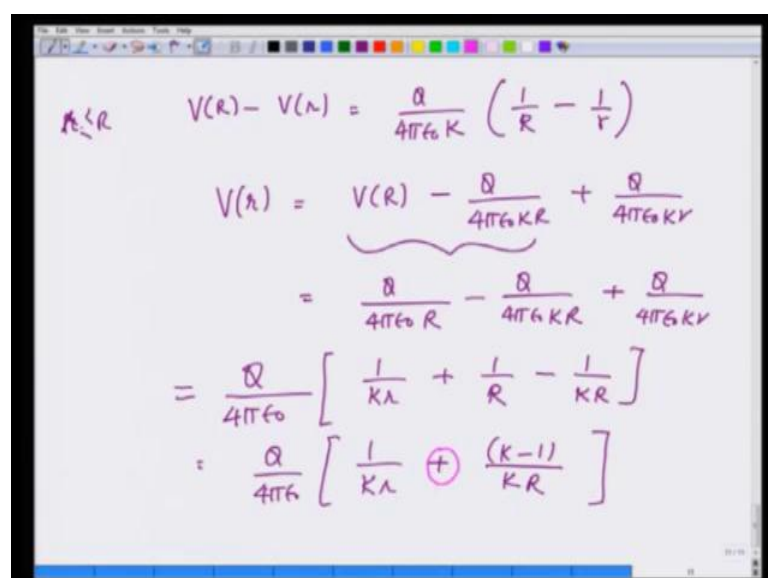 File Edit View Insert Actions Tools Help
r ≤ R V(R) − V(r) = Q/(4π∈₀K) (1/R − 1/r)
V(r) = V(R) − Q/(4π∈₀KR) + Q/(4π∈₀Kr)
= Q/(4π∈₀R) − Q/(4π∈₀KR) + Q/(4π∈₀Kr)
= Q/(4π∈₀) [ 1/(Kr) + 1/R − 1/(KR) ]
= Q/(4π∈₀) [ 1/(Kr) + (K−1)/(KR) ]